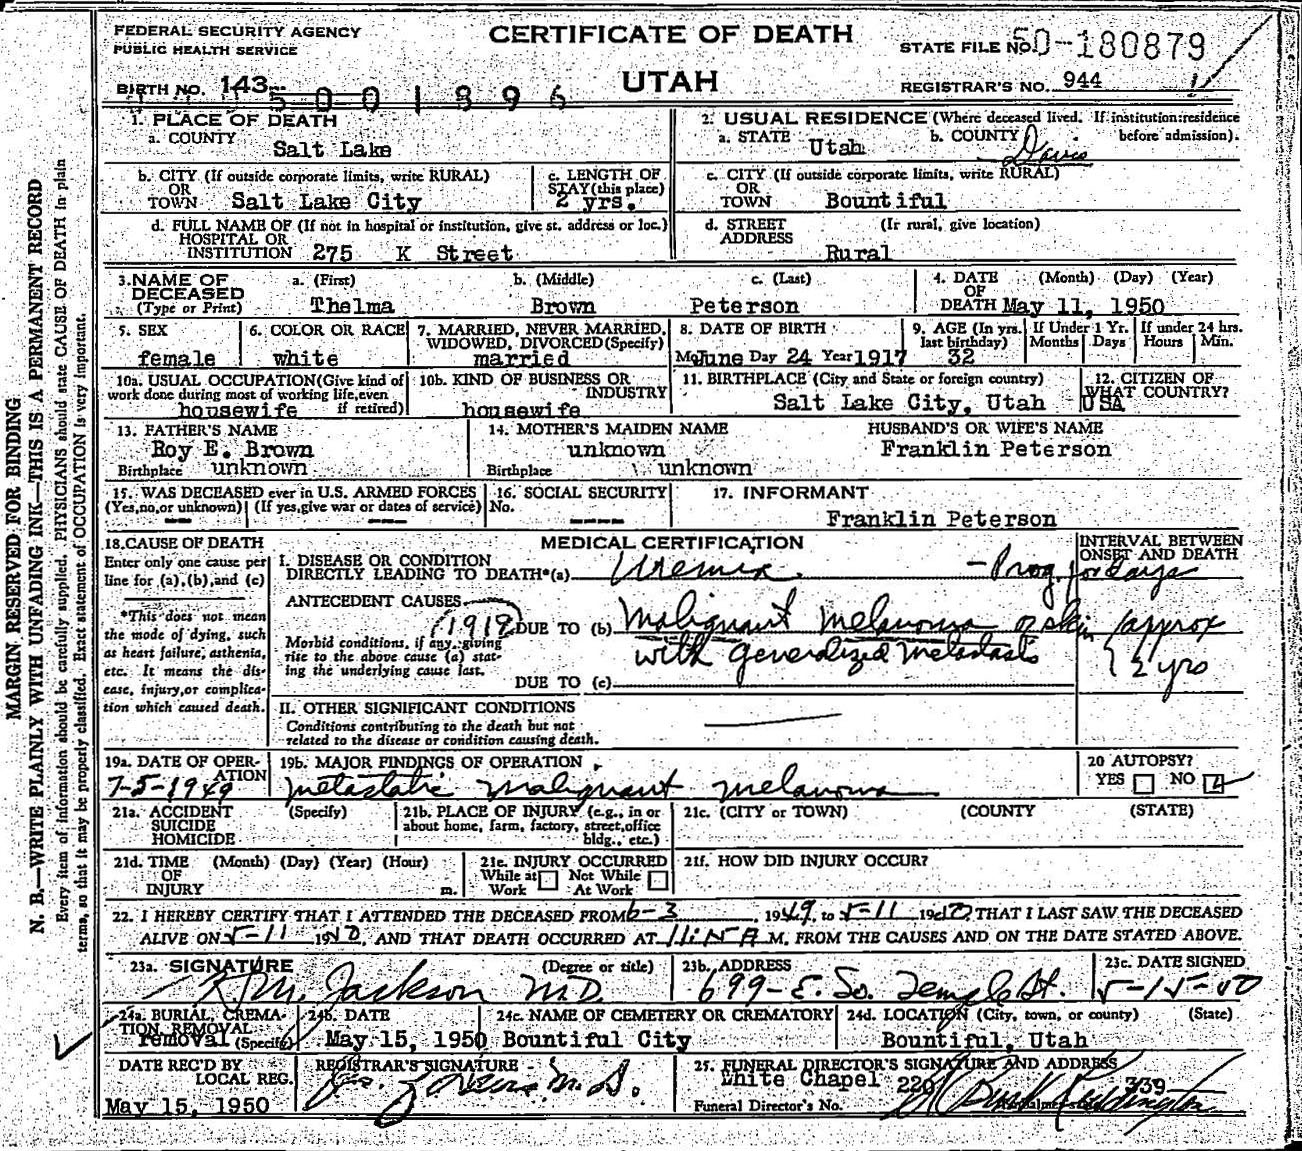 FEDERAL SECURITY AGENCY
PUBLIC HEALTH SERVICE
CERTIFICATE OF DEATH
UTAH
STATE FILE NO. 50-180879
BIRTH NO. 143
REGISTRAR'S NO. 944
1. PLACE OF DEATH
a. COUNTY
Salt Lake
2. USUAL RESIDENCE (Where deceased lived. If institution: residence before admission).
a. STATE Utah b. COUNTY Davis
b. CITY (If outside corporate limits, write RURAL)
OR
TOWN Salt Lake City
c. LENGTH OF
STAY (this place)
2 yrs.
c. CITY (If outside corporate limits, write RURAL)
OR
TOWN Bountiful
d. FULL NAME OF (If not in hospital or institution, give st. address or loc.)
HOSPITAL OR
INSTITUTION 275 K Street
d. STREET (Ir rural, give location)
ADDRESS
Rural
3. NAME OF a. (First) b. (Middle) c. (Last)
DECEASED
(Type or Print) Thelma Brown Peterson
4. DATE (Month) (Day) (Year)
OF
DEATH May 11, 1950
5. SEX
female
6. COLOR OR RACE
white
7. MARRIED, NEVER MARRIED,
WIDOWED, DIVORCED (Specify)
married
8. DATE OF BIRTH
Mo June Day 24 Year 1917
9. AGE (In yrs. last birthday)
32
If Under 1 Yr.
Months Days
If under 24 hrs.
Hours Min.
10a. USUAL OCCUPATION (Give kind of
work done during most of working life, even
if retired)
housewife
10b. KIND OF BUSINESS OR
INDUSTRY
housewife
11. BIRTHPLACE (City and State or foreign country)
Salt Lake City, Utah
12. CITIZEN OF
WHAT COUNTRY?
USA
13. FATHER'S NAME
Roy E. Brown
Birthplace unknown
14. MOTHER'S MAIDEN NAME
unknown
Birthplace unknown
HUSBAND'S OR WIFE'S NAME
Franklin Peterson
15. WAS DECEASED ever in U.S. ARMED FORCES
(Yes, no, or unknown) (If yes, give war or dates of service)
16. SOCIAL SECURITY
No.
17. INFORMANT
Franklin Peterson
18. CAUSE OF DEATH
Enter only one cause per
line for (a), (b), and (c)
*This does not mean
the mode of dying, such
as heart failure, asthenia,
etc. It means the dis-
ease, injury, or complica-
tion which caused death.
MEDICAL CERTIFICATION
INTERVAL BETWEEN
ONSET AND DEATH
I. DISEASE OR CONDITION
DIRECTLY LEADING TO DEATH*(a) Uremia - Prog. for days
ANTECEDENT CAUSES
Morbid conditions, if any, giving
rise to the above cause (a) stat-
ing the underlying cause last.
DUE TO (b) Malignant melanoma of skin
with generalized metastasis
approx
2 yrs
DUE TO (c)
II. OTHER SIGNIFICANT CONDITIONS
Conditions contributing to the death but not
related to the disease or condition causing death.
19a. DATE OF OPER-
ATION
7-5-1949
19b. MAJOR FINDINGS OF OPERATION
metastatic malignant melanoma
20 AUTOPSY?
YES NO
21a. ACCIDENT (Specify)
SUICIDE
HOMICIDE
21b. PLACE OF INJURY (e.g., in or
about home, farm, factory, street, office
bldg., etc.)
21c. (CITY or TOWN) (COUNTY) (STATE)
21d. TIME (Month) (Day) (Year) (Hour)
OF
INJURY m.
21e. INJURY OCCURRED
While at Not While
Work At Work
21f. HOW DID INJURY OCCUR?
22. I HEREBY CERTIFY THAT I ATTENDED THE DECEASED FROM 6-3, 1949, to 5-11 1950 THAT I LAST SAW THE DECEASED
ALIVE ON 5-11 1950, AND THAT DEATH OCCURRED AT M. FROM THE CAUSES AND ON THE DATE STATED ABOVE.
23a. SIGNATURE (Degree or title)
Jackson M.D.
23b. ADDRESS
699 - E. So. Temple St.
23c. DATE SIGNED
5-15-50
24a. BURIAL, CREMA-
TION, REMOVAL
removal (Specify)
24b. DATE
May 15, 1950
24c. NAME OF CEMETERY OR CREMATORY
Bountiful City
24d. LOCATION (City, town, or county) (State)
Bountiful, Utah
DATE REC'D BY
LOCAL REG.
May 15, 1950
REGISTRAR'S SIGNATURE
M.D.
25. FUNERAL DIRECTOR'S SIGNATURE AND ADDRESS
White Chapel 220 339
Funeral Director's No.
MARGIN RESERVED FOR BINDING
N. B.—WRITE PLAINLY WITH UNFADING INK—THIS IS A PERMANENT RECORD
Every item of information should be carefully supplied. PHYSICIANS should state CAUSE OF DEATH in plain
terms, so that it may be properly classified. Exact statement of OCCUPATION is very important.